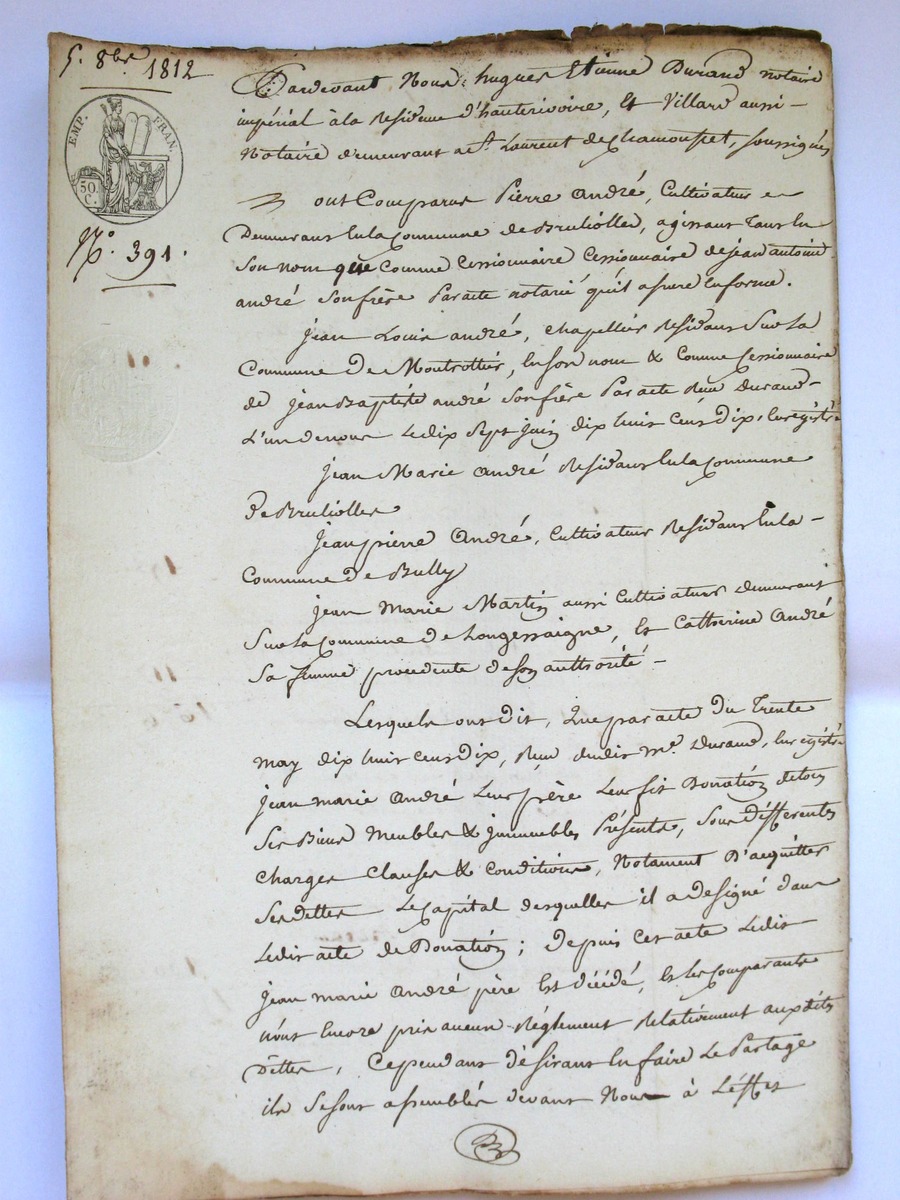 5. 8bre 1812
EMP. FRAN.
50 C.
N°. 391.
Pardevant Nous hugues Etienne Durand notaire
impérial à la Residence d'hauterivoire, Et Villard aussi –
Notaire demeurant a St. Laurent de Chamousset, soussignés
ont Comparus Pierre André, Cultivateur
Demeurant en la Commune de Brulliolles, agissant tant en
Son nom que comme Cessionnaire Cessionnaire de jean antoine
andré Son frère Par acte notarié qu'il asure en forme.
Jean Louis andré, chapellier Residant Sur la
Commune De Montrottier, en son nom & Comme Cessionnaire
de jean Baptiste andré Son frère Par acte Reçu Durand –
L'un de nous Le dix Sept Juin dix huit Cent Dix, Enregistré
Jean Marie André Residant En la Commune
De Brulliolles
Jean pierre André, Cultivateur Residant En la –
Commune De Bully
Jean Marie Martin aussi Cultivateur demeurant
Sur la Commune De Longessaigne, Et Catherine André
Sa femme procedente de son authorité –
Lesquels ont Dit, Que par acte Du Trente
may dix huit Cent Dix, Reçu dudit me. Durand, Enregistré
Jean marie André Leur père Leur fit Donation de tous
Ses Biens Meubles & immeubles Présents, Sous différentes
Charges Clauses & Conditions, Notament D'acquitter
Ses dettes Le Capital desquelles il a designé dans
Ledit acte de Donation; Depuis Cet acte Ledit
Jean marie André père Est décédé, Et Les Comparants
n'ont Encore pris aucun Réglement Relativement aux dites
Dettes, Cependant désirant En faire Le Partage
ils Se sont assemblés devant Nous à L'éffet